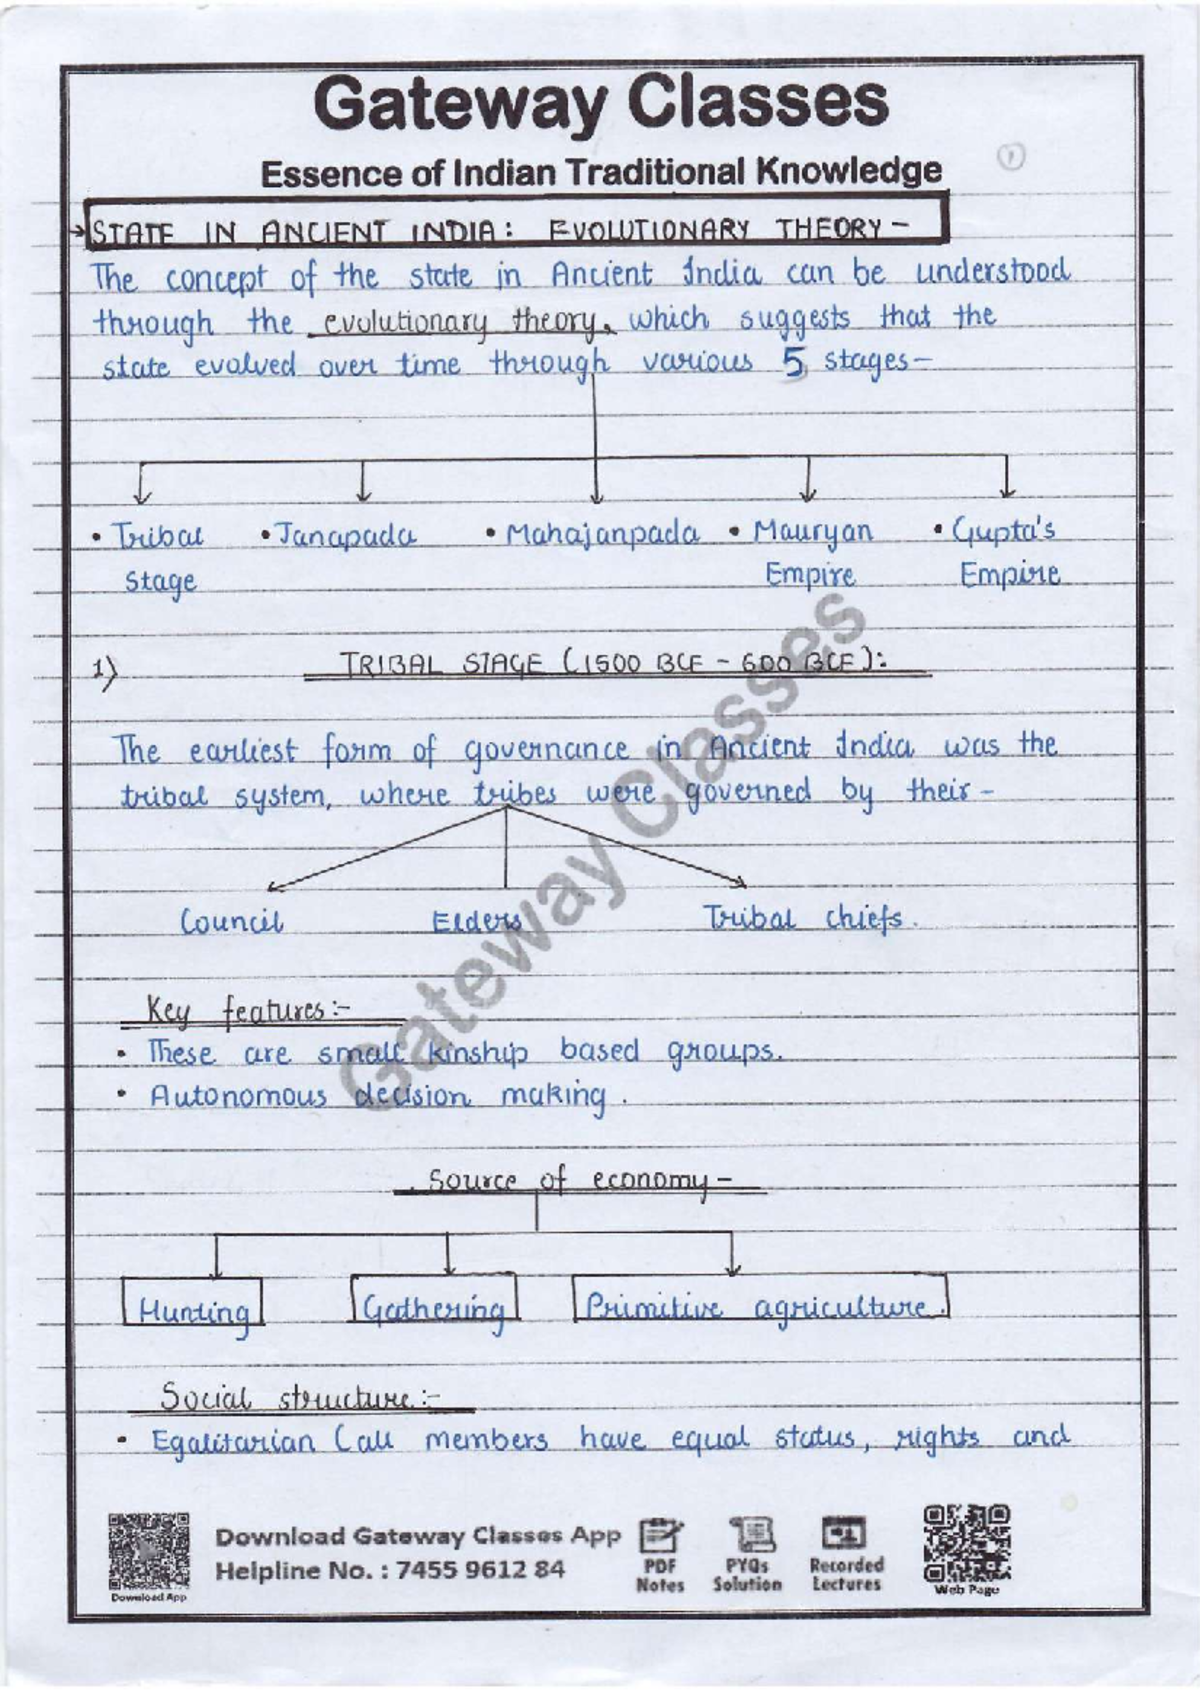 Gateway Classes
Essence of Indian Traditional Knowledge
1
STATE IN ANCIENT INDIA: EVOLUTIONARY THEORY -
The concept of the state in Ancient India can be understood
through the evolutionary theory, which suggests that the
state evolved over time through various 5 stages-
• Tribal Stage
• Janapada
• Mahajanpada
• Mauryan Empire
• Gupta's Empire
1) TRIBAL STAGE (1500 BCE - 600 BCE):
The earliest form of governance in Ancient India was the
tribal system, where tribes were governed by their-
Council Elders Tribal chiefs.
Key features:-
• These are small kinship based groups.
• Autonomous decision making.
Source of economy-
Hunting Gathering Primitive agriculture.
Social structure:-
• Egalitarian (all members have equal status, rights and
Gateway Classes
Download Gateway Classes App
Helpline No. : 7455 9612 84
Download App
PDF Notes
PYQs Solution
Recorded Lectures
Web Page